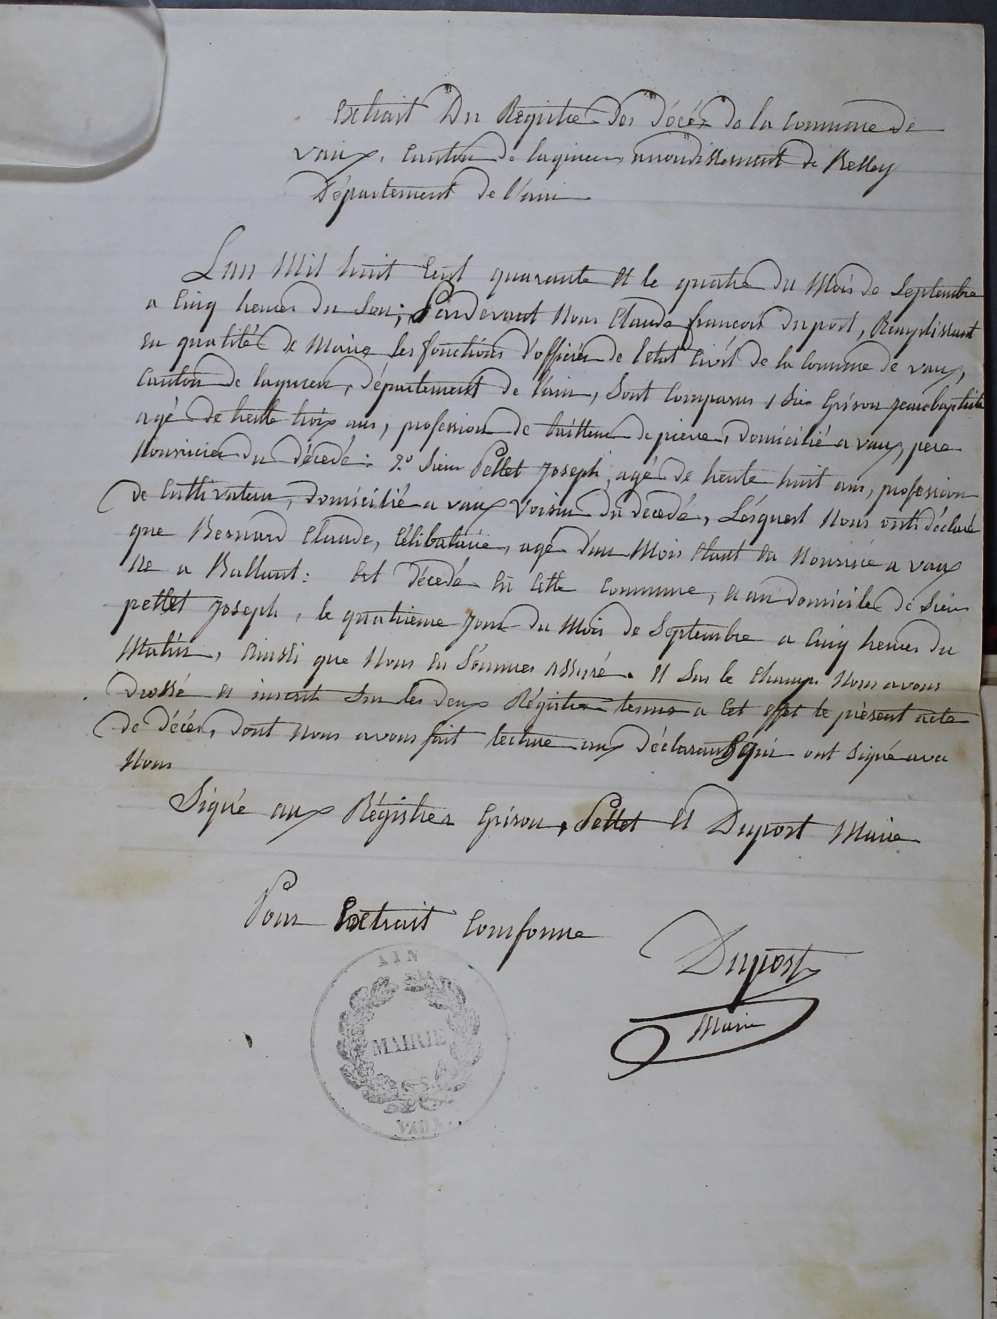 Extrait Du Régistre Des décéz de la Commune de
vaux, Canton de lagnieu arrondissement de Belley
Département de l'ain
L'an Mil huit Cent quarante Et le quatre du Mois de Septembre
a Cinq heures du Soir; Pardevant Nous Claude françois Duport, Remplissant
En qualité de Maire les fonctions d'officier de l'état Civil de la Commune de vaux,
Canton de lagnieu, département de l'ain, Sont Comparus 1 Sieur Grison jean baptiste
agé de trente trois ans, profession de tailleur de pierre, domicilié a vaux, pere
Nourricier du décédé: 2º Sieur Pellet Joseph, agé de trente huit ans, profession
de Cultivateur, domicilié a vaux Voisin du décédé, Lésquest Nous ont déclaré
que Bernard Claude, Célibataire, agé d'un Mois Etant En Nourrice a vaux
Né a : Est décédé En Cette Commune, Et au domicile de Sieur
pellet Joseph, le quatrieme Jour du Mois de Septembre a Cinq heures du
Matin, ainsi que Nous En Sommes assuré. Et Sur le Champ Nous avons
Dressé et inscrit Sur les deux Régistres tenus a Cet effet le présent acte
de décés, dont Nous avons fait lecture aux déclarants qui ont signé avec
Nous
Signé aux Régistres Grison, Pellet Et Duport Maire
Pour Extrait Conforme
Duport
Maire
AIN
MAIRIE
VAUX